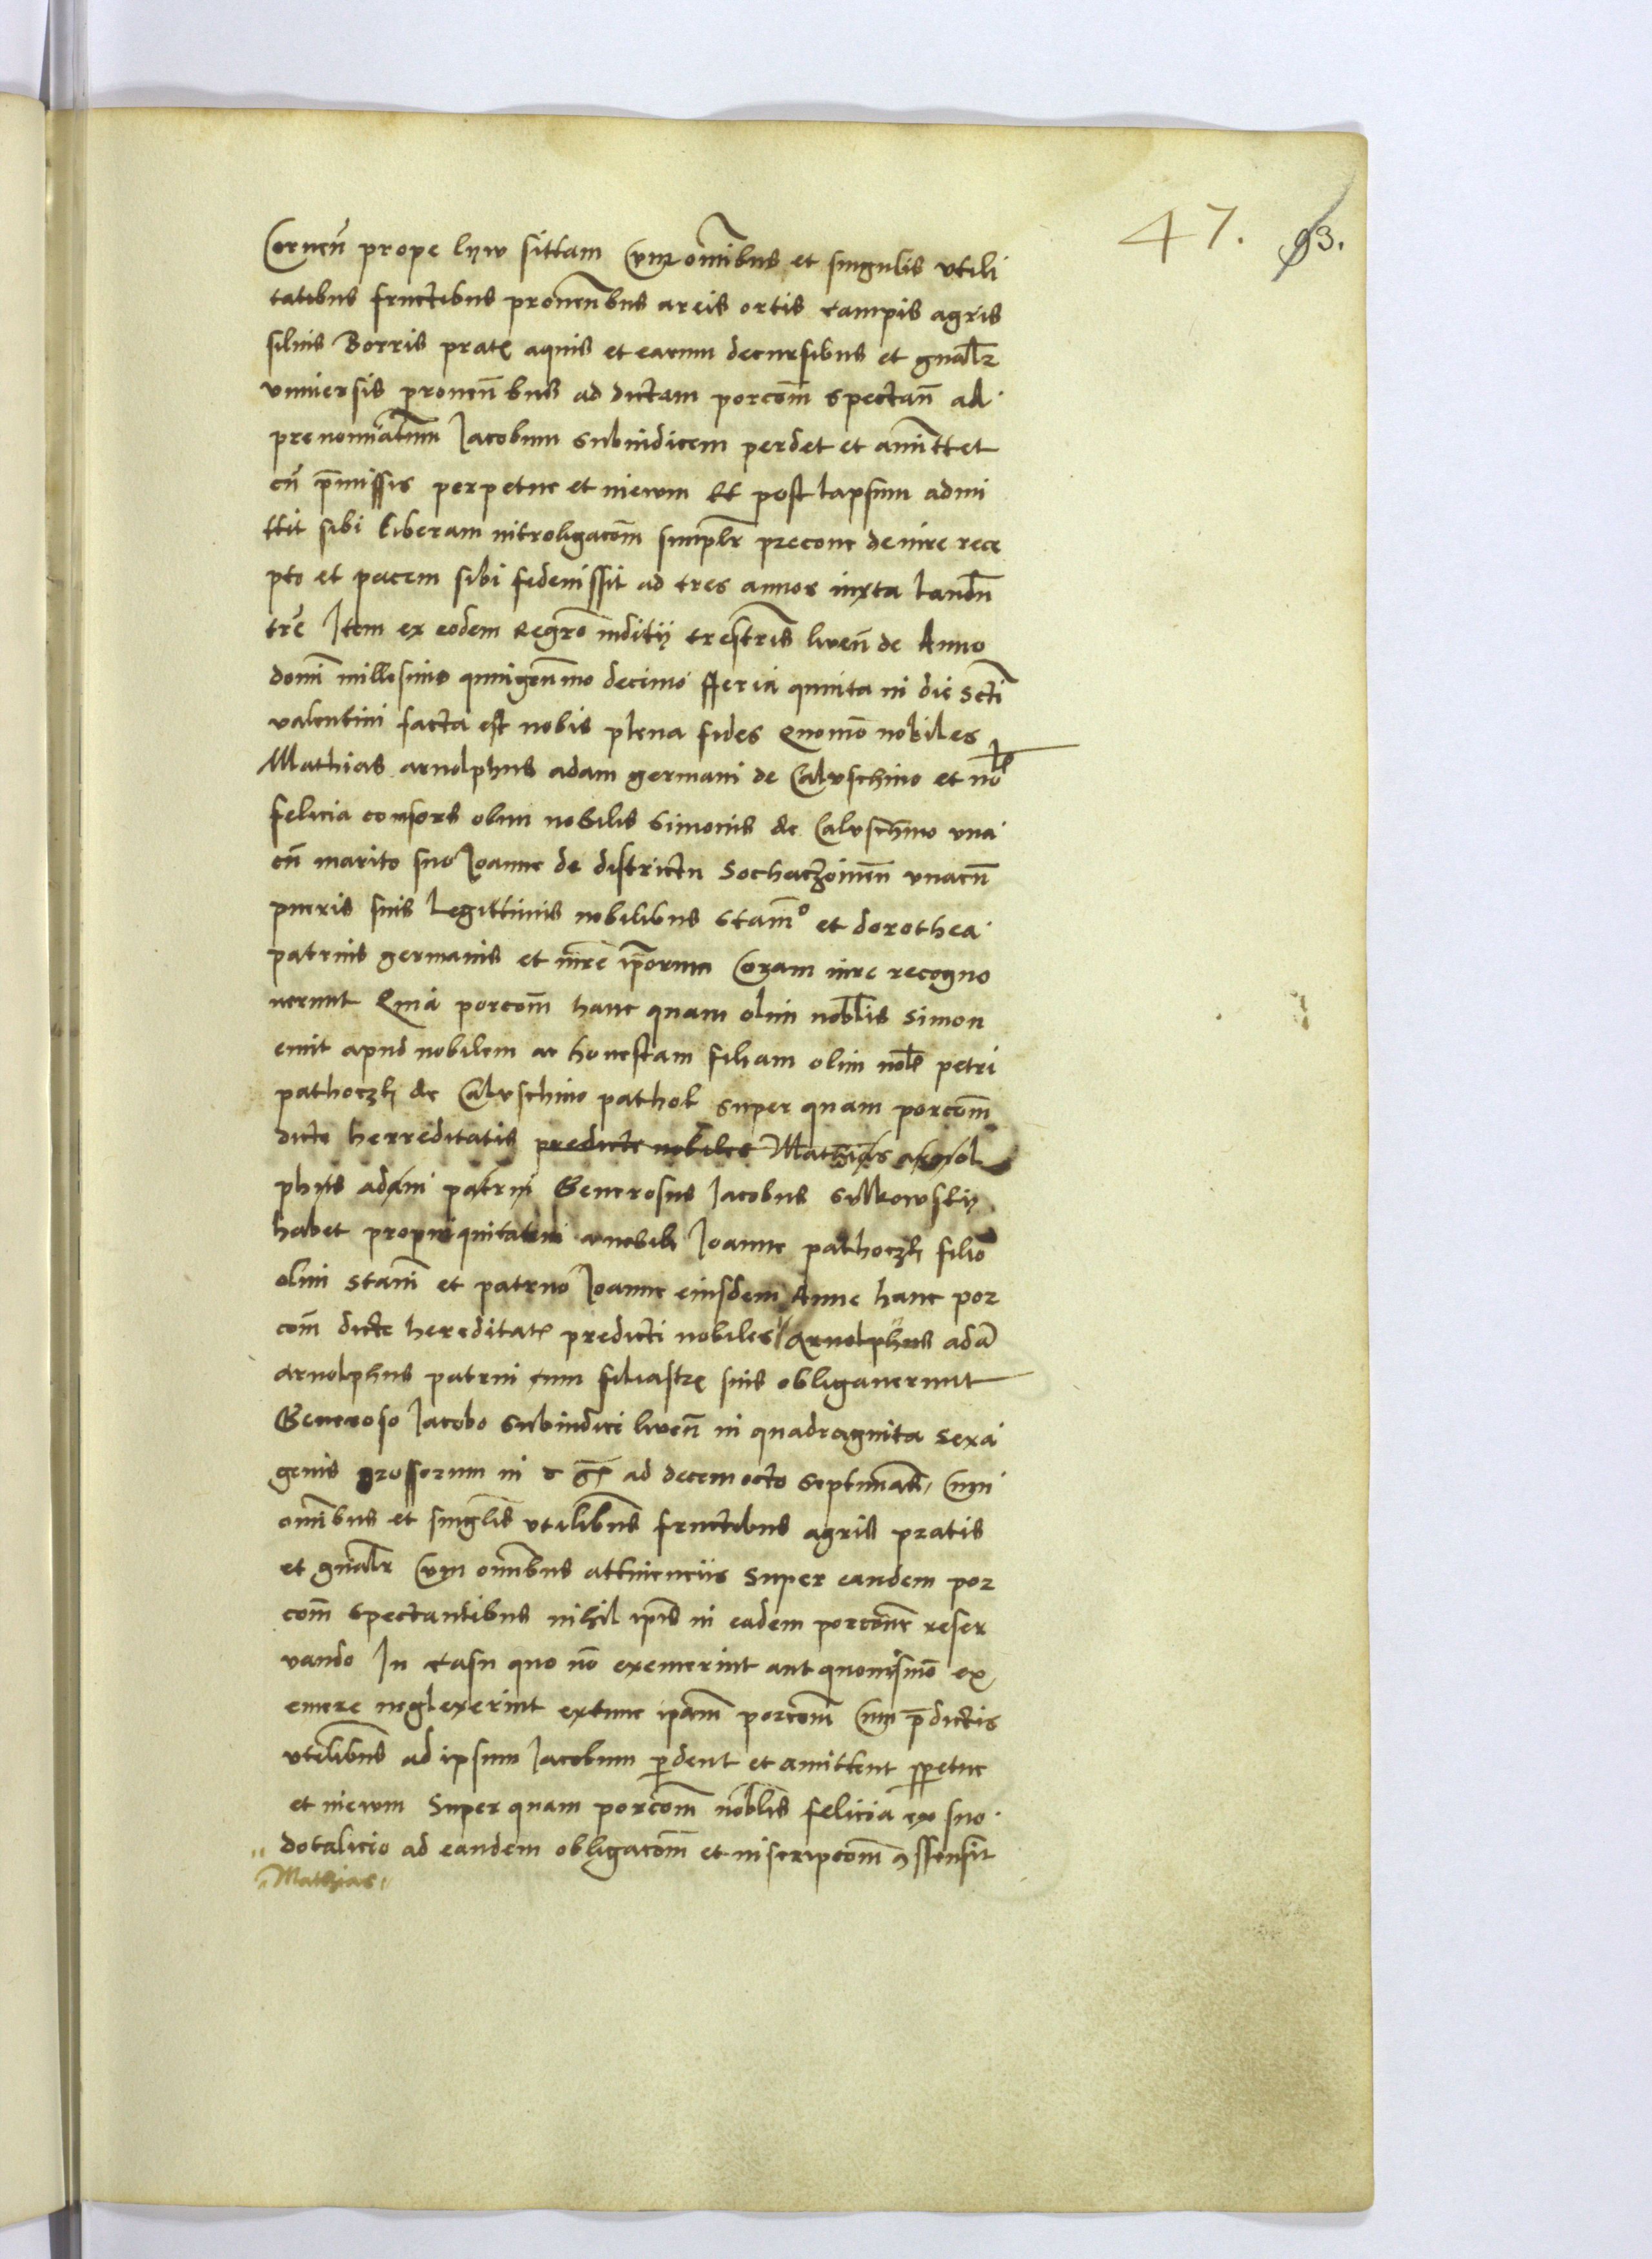 47. 93.
Czernen̄ prope lyw sittam Cum om̄ibus et singulis vtili
tatibus fructibus prouen̄bus areis ortis campis agris
siluis Borris prat aquis et earum decursibus et gnalr
vniuersis prouen̄bus ad dictam porcōm spectan̄ ad
prenominatum Jacobum subiudicem perdet et amittet
cū p̄missis perpetue et in ewm Et post lapsum admi
ttit sibi liberam intrologacōm simplr precone de iure rece
pto et pacem sibi fedeiussit ad tres annos iuxta laudū
tre Item ex eodem Regrō iuditij trēstris liwen̄ de Anno
domī millesimo quingen̄mo decimo fferia quinta in die scti
valentini facta est nobis plena fides Quomō nobiles
Mathias arnolphus adam germani de Caluschino et nob
felicia consors olim nobilis simonis de Caluschino vna
cū marito suo Joanne de districtu Sochaczowien̄ vnacū
pueris suis legittimis nobilibus Stanīo et dorothea
patruis germanis et mr̄e ip̄orum Coram iure recogno
uerunt Quia porcōm hanc quam olim noblis simon
emit apud nobilem ac honestam filiam olim nob petri
pathoczk de Caluschino pathok super quam porcōm
dicte herreditatis predicte nobiles Mathias arnol
phus adam patrui Generosus Jacobus Sulkowskij
habet propinquitatem a nobili Joanne pathoczk filio
olim Stani et patruo Joanne eiusdem Anne hanc por
cōm dicte hereditat predicti nobiles " Arnolphus adā
arnolphus patrui cum filiastr suis obligauerunt
Generoso Jacobo Subiudici liwen̄ in quadraginta sexa
genis grossorum in ad decemocto septimas Cum
om̄ibus et singlis vtilibus fructibus agris pratis
et gnalr Cum om̄ibus attinenciis super eandem por
cōm spectantibus nihil ip̄is in eadem porcōne reser
vando In casu quo nō exemerint aut quomōsmō ex
emere neglexerint extunc ip̄am porcōm Cum p̄dictis
vtilibus ad ipsum Jacobum pdent et amittent ppetue
et in ewm Super quam porcōm noblis felicia ex suo
dotalicio ad eandem obligacōm et inscripcōm assensit
" Mathias "